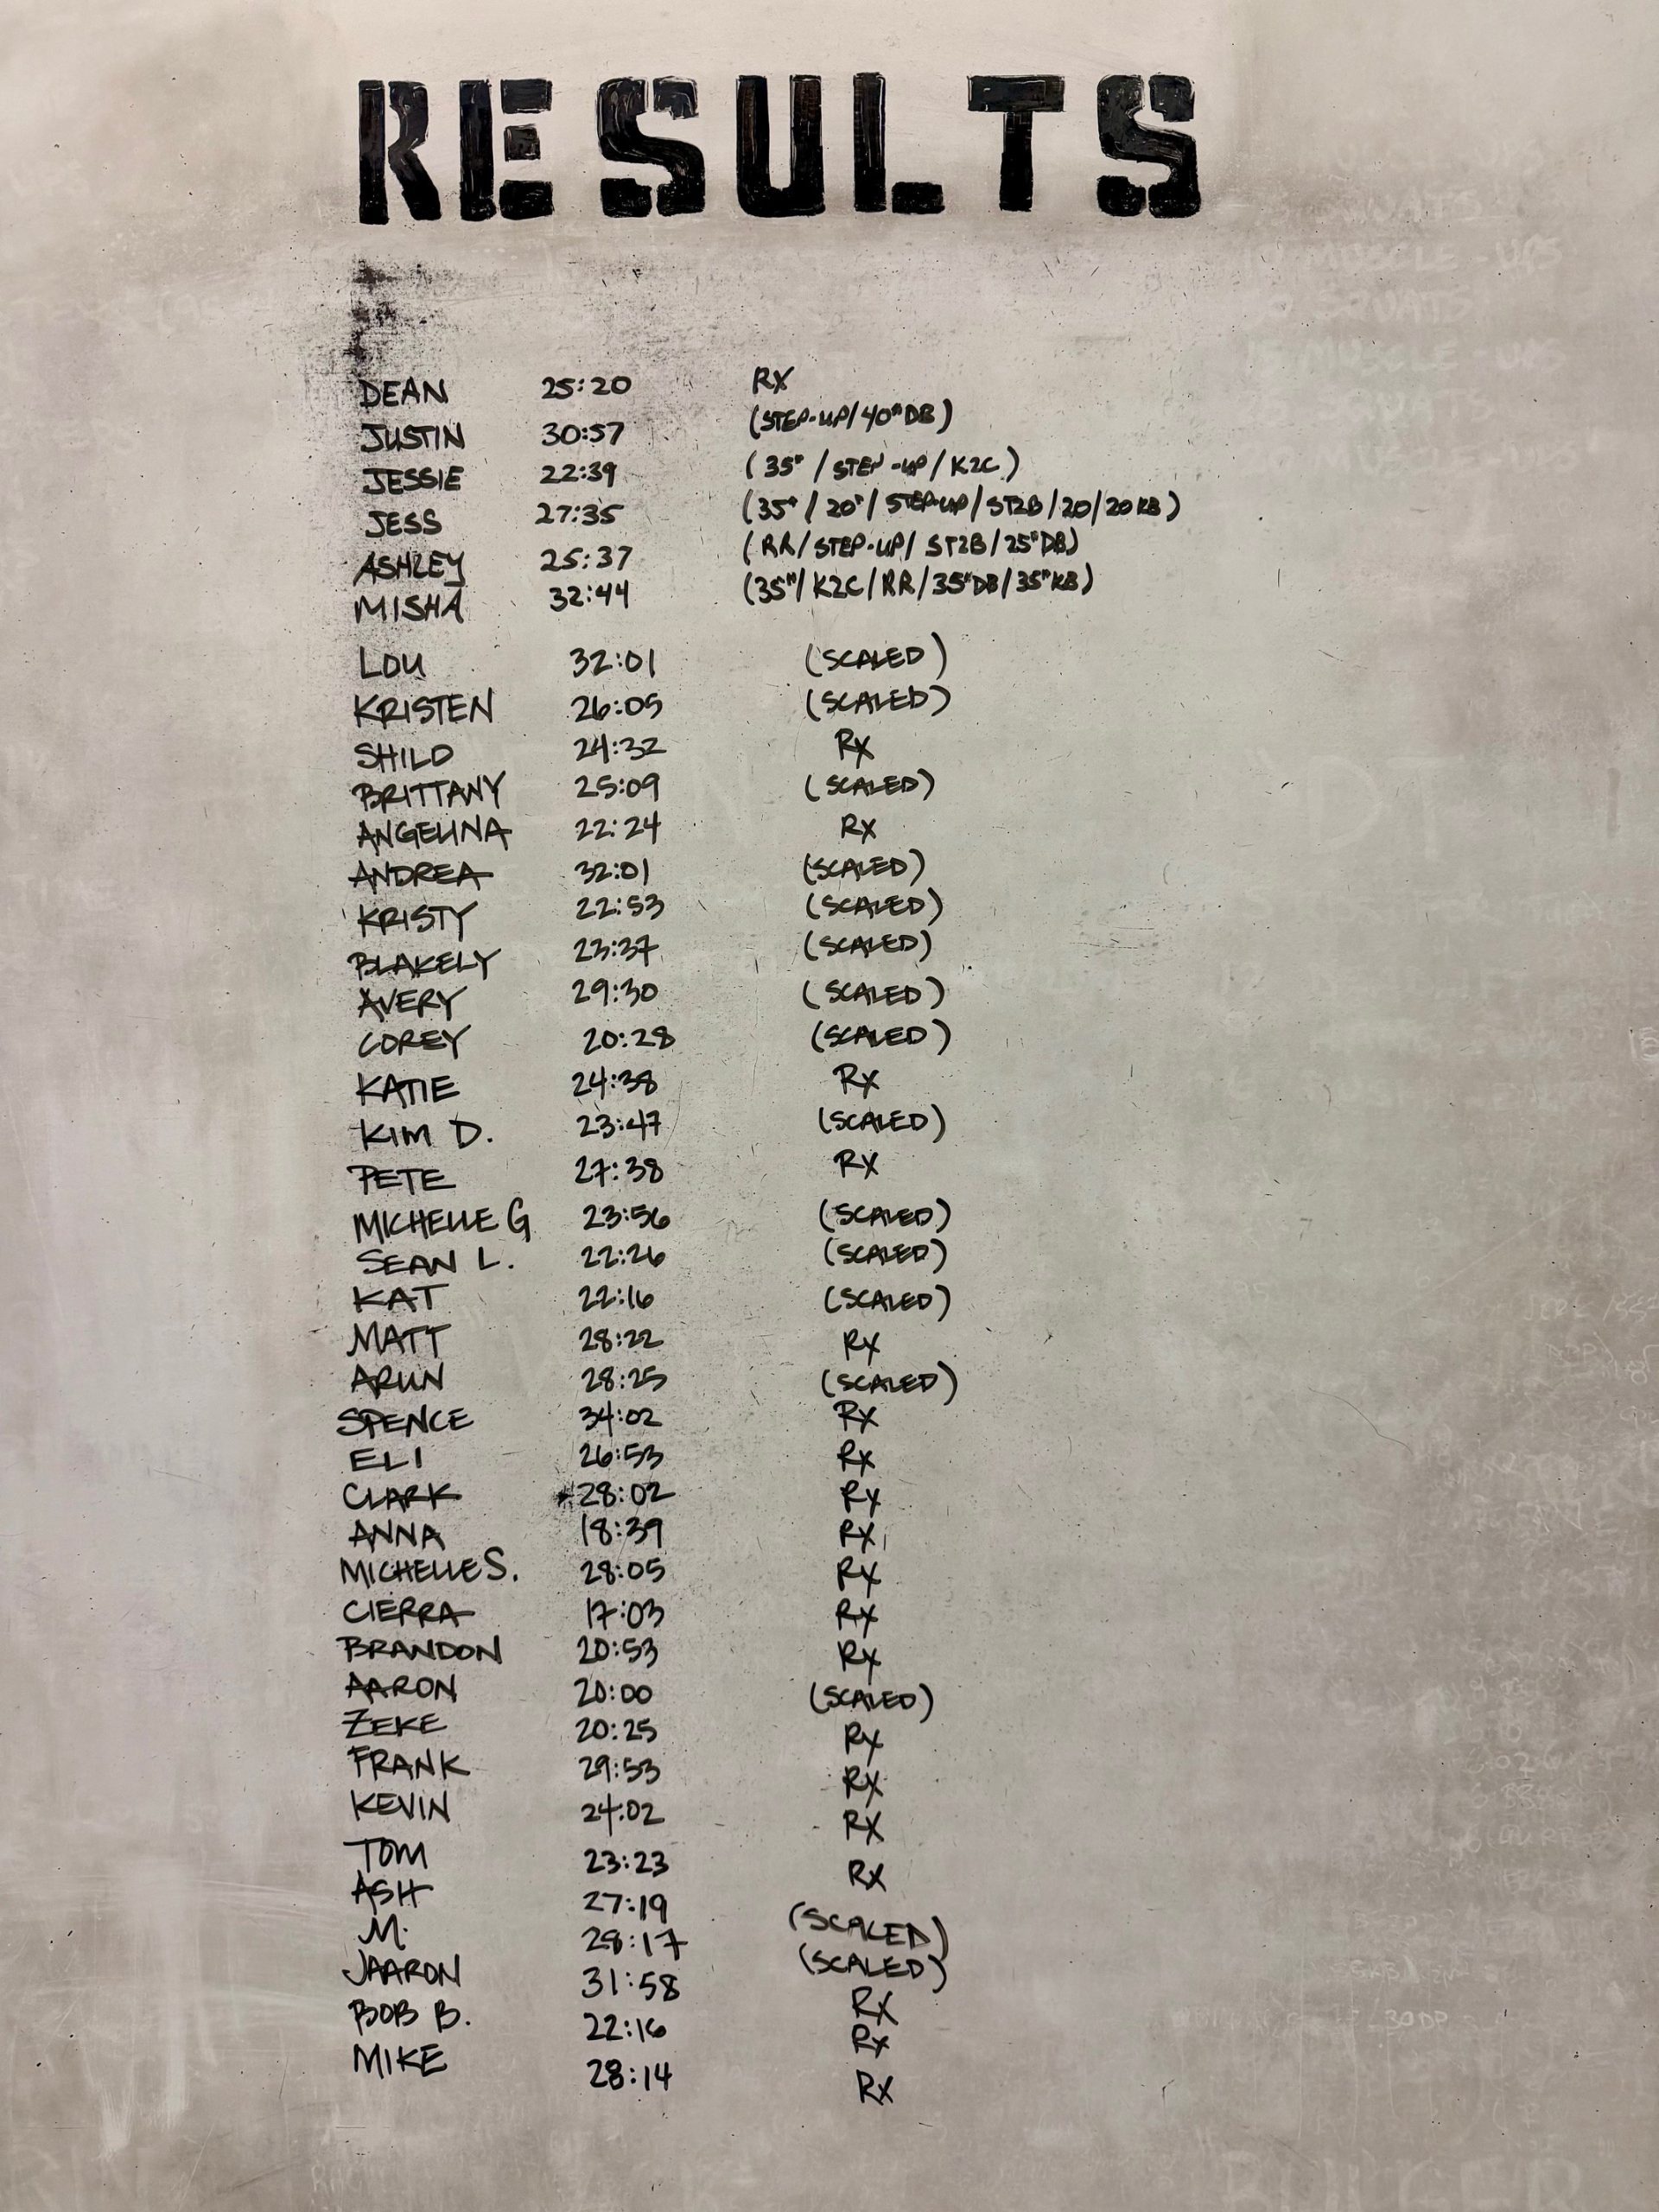 RESULTS
DEAN 25:20 RX
JUSTIN 30:57 (STEP-UP/40# DB)
JESSIE 22:39 (35# / STEP-UP / K2C)
JESS 27:35 (35# / 20" / STEP-UP / ST2B / 20 / 20 KB)
ASHLEY 25:37 (RR / STEP-UP / ST2B / 25# DB)
MISHA 32:44 (35# / K2C / RR / 35# DB / 35# KB)
LOU 32:01 (SCALED)
KRISTEN 26:05 (SCALED)
SHILO 24:32 RX
BRITTANY 25:09 (SCALED)
ANGELINA 22:24 RX
ANDREA 32:01 (SCALED)
KRISTY 22:53 (SCALED)
BLAKELY 23:37 (SCALED)
AVERY 29:30 (SCALED)
COREY 20:28 (SCALED)
KATIE 24:38 RX
KIM D. 23:47 (SCALED)
PETE 27:38 RX
MICHELLE G 23:56 (SCALED)
SEAN L. 22:26 (SCALED)
KAT 22:16 (SCALED)
MATT 28:22 RX
ARUN 28:25 (SCALED)
SPENCE 34:02 RX
ELI 26:53 RX
CLARK 28:02 RX
ANNA 18:39 RX
MICHELLE S. 28:05 RX
CIERRA 17:03 RX
BRANDON 20:53 RX
AARON 20:00 (SCALED)
ZEKE 20:25 RX
FRANK 29:53 RX
KEVIN 24:02 RX
TOM 23:23 RX
ASH 27:19 (SCALED)
M. 28:17 (SCALED)
JAARON 31:58 RX
BOB B. 22:16 RX
MIKE 28:14 RX